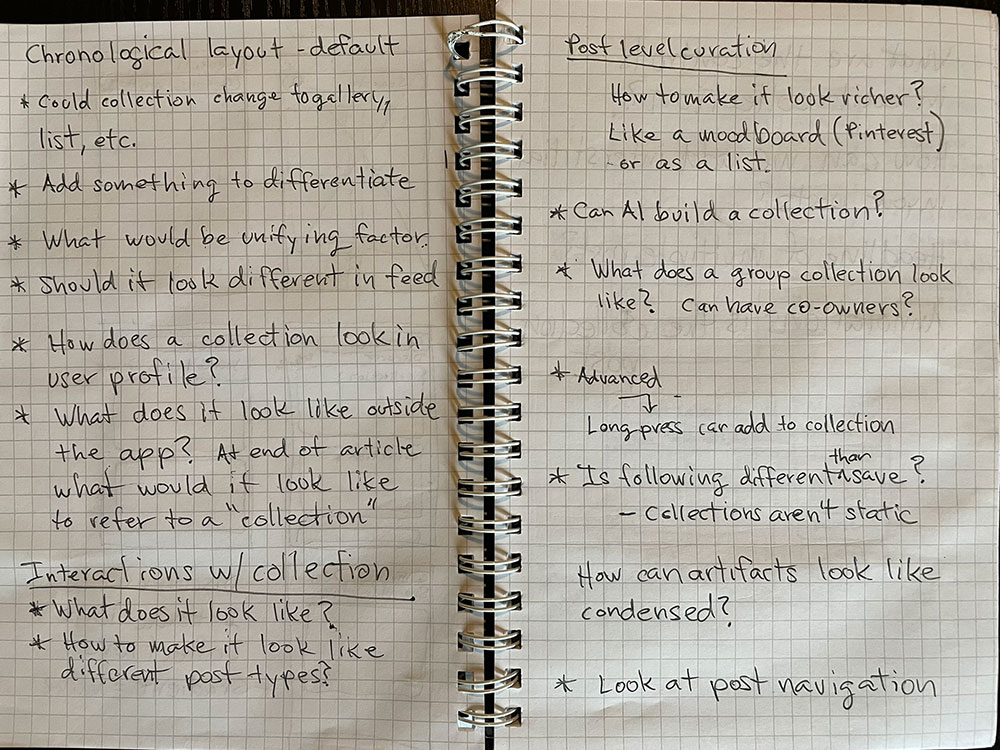 Chronological layout - default
* Could collection change to gallery,
list, etc.
* Add something to differentiate
* What would be unifying factor.
* Should it look different in feed
* How does a collection look in
user profile?
* What does it look like outside
the app? At end of article
what would it look like
to refer to a "collection"
Interactions w/ collection
* What does it look like?
* How to make it look like
different post types?
Post level curation
How to make it look richer?
Like a moodboard (Pinterest)
- or as a list.
* Can AI build a collection?
* What does a group collection look
like? Can have co-owners?
* Advanced
↓
Long-press can add to collection
* Is following different than save?
- Collections aren't static
How can artifacts look like
condensed?
* Look at post navigation